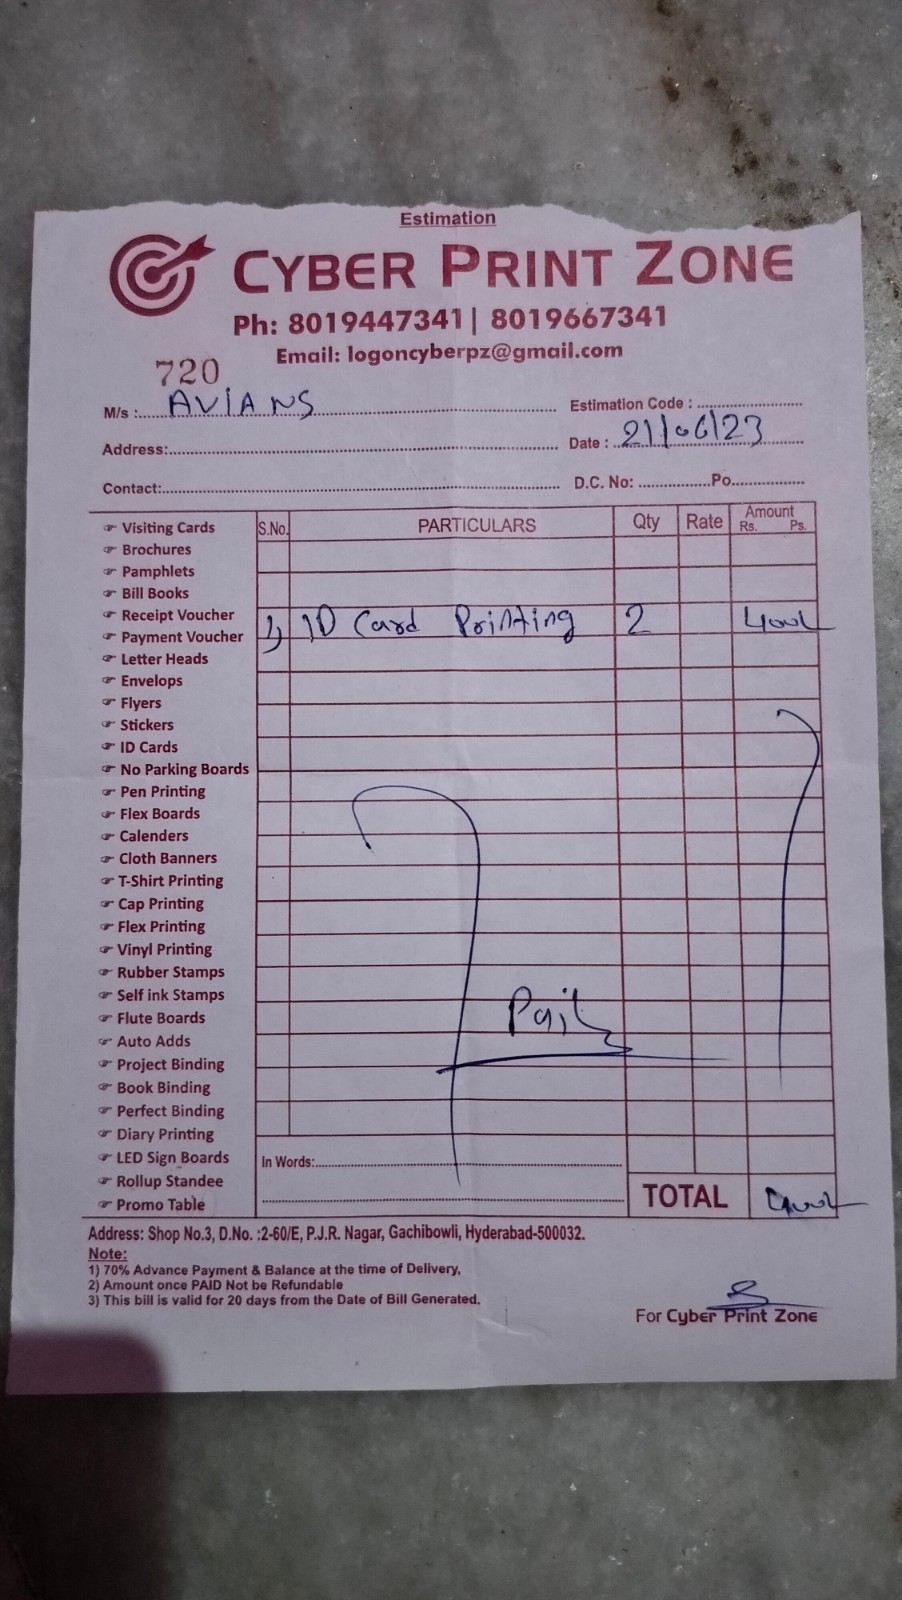 Estimation
CYBER PRINT ZONE
Ph: 8019447341| 8019667341
Email: logoncyberpz@gmail.com
720
M/s :..... AVIANS
Estimation Code : ........................
Address:....................
Date : 21/06/23
Contact:....................
D.C. No: ................Po................
S.No. PARTICULARS Qty Rate Amount
Rs. Ps.
1) ID Card Printing 2 400/-
☞ Visiting Cards
☞ Brochures
☞ Pamphlets
☞ Bill Books
☞ Receipt Voucher
☞ Payment Voucher
☞ Letter Heads
☞ Envelops
☞ Flyers
☞ Stickers
☞ ID Cards
☞ No Parking Boards
☞ Pen Printing
☞ Flex Boards
☞ Calenders
☞ Cloth Banners
☞ T-Shirt Printing
☞ Cap Printing
☞ Flex Printing
☞ Vinyl Printing
☞ Rubber Stamps
☞ Self ink Stamps
☞ Flute Boards
☞ Auto Adds
☞ Project Binding
☞ Book Binding
☞ Perfect Binding
☞ Diary Printing
☞ LED Sign Boards
☞ Rollup Standee
☞ Promo Table
Paid
In Words:....................
TOTAL 400/-
Address: Shop No.3, D.No. :2-60/E, P.J.R. Nagar, Gachibowli, Hyderabad-500032.
Note:
1) 70% Advance Payment & Balance at the time of Delivery,
2) Amount once PAID Not be Refundable
3) This bill is valid for 20 days from the Date of Bill Generated.
For Cyber Print Zone